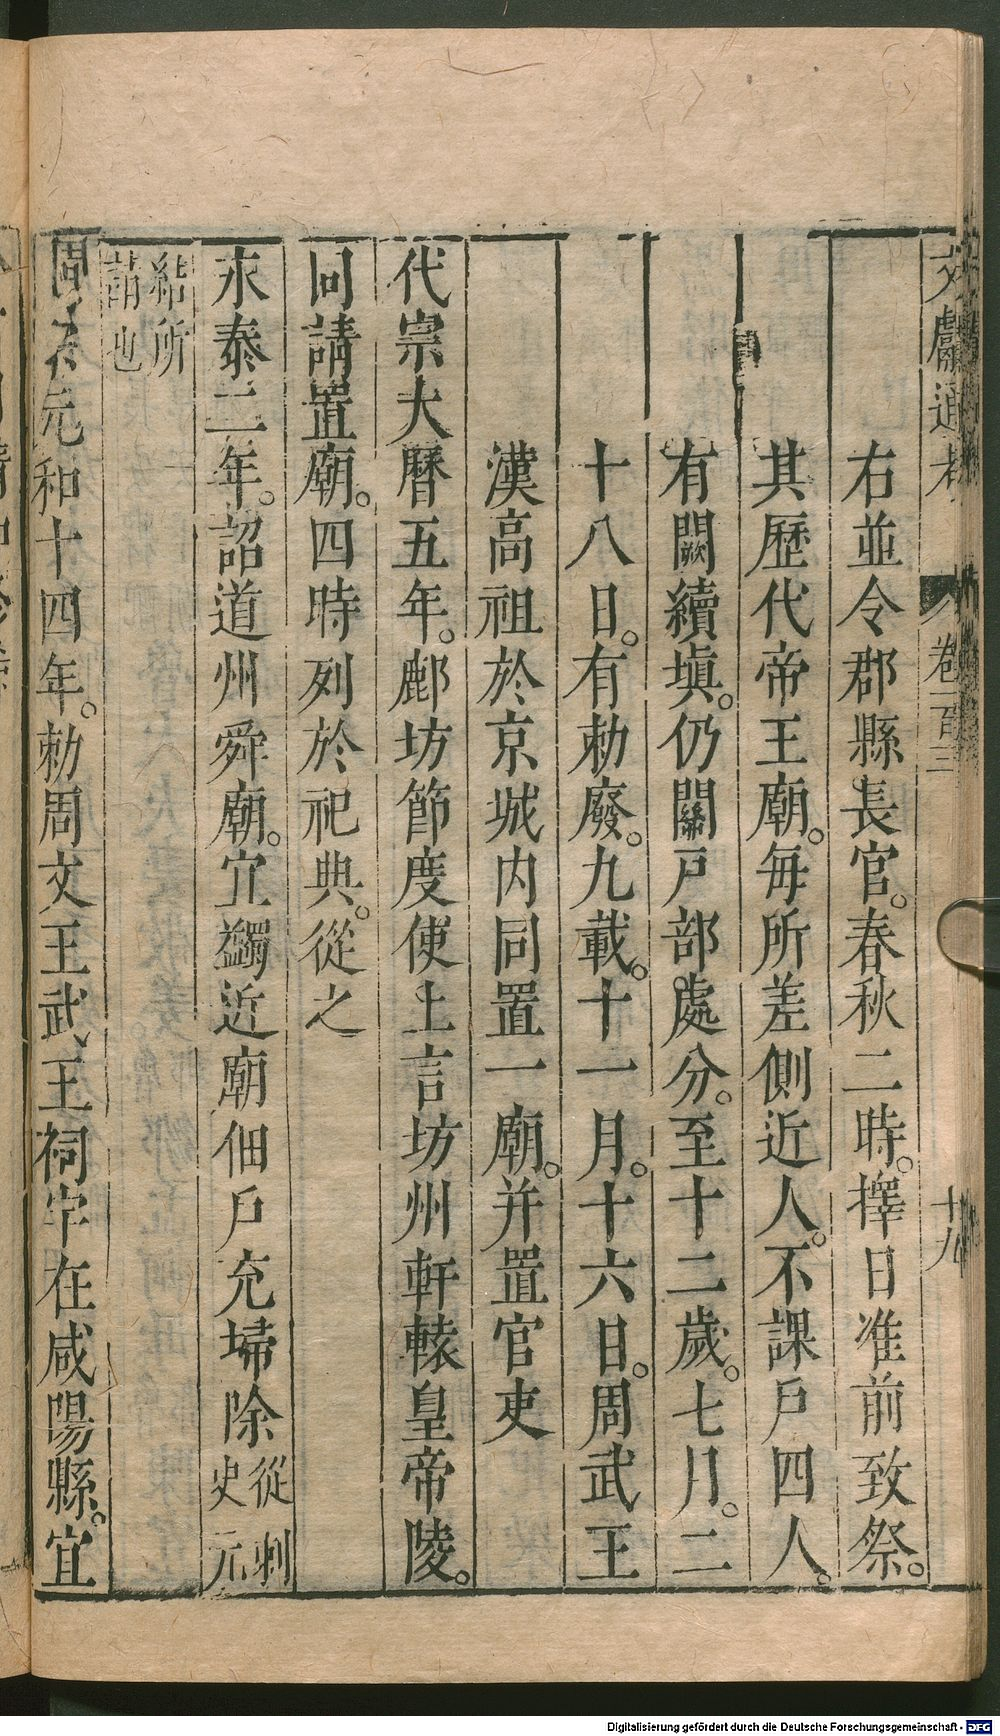 文獻通考 卷一百三 十九
右並令郡縣長官。春秋二時。擇日准前致祭。
其歷代帝王廟。每所差側近人。不課戶四人。
有闕續塡。仍關戶部處分。至十二歲。七月。二
十八日。有勅廢。九載。十一月。十六日。周武王
漢高祖於京城內同置一廟。并置官吏
代宗大曆五年。鄜坊節度使上言坊州軒轅皇帝陵。
同請置廟。四時列於祀典。從之
永泰二年。詔道州舜廟。宜蠲近廟佃戶充埽除從刺史元
結所請也
元和十四年。勅周文王武王祠宇在咸陽縣。宜
Digitalisierung gefördert durch die Deutsche Forschungsgemeinschaft - DFG